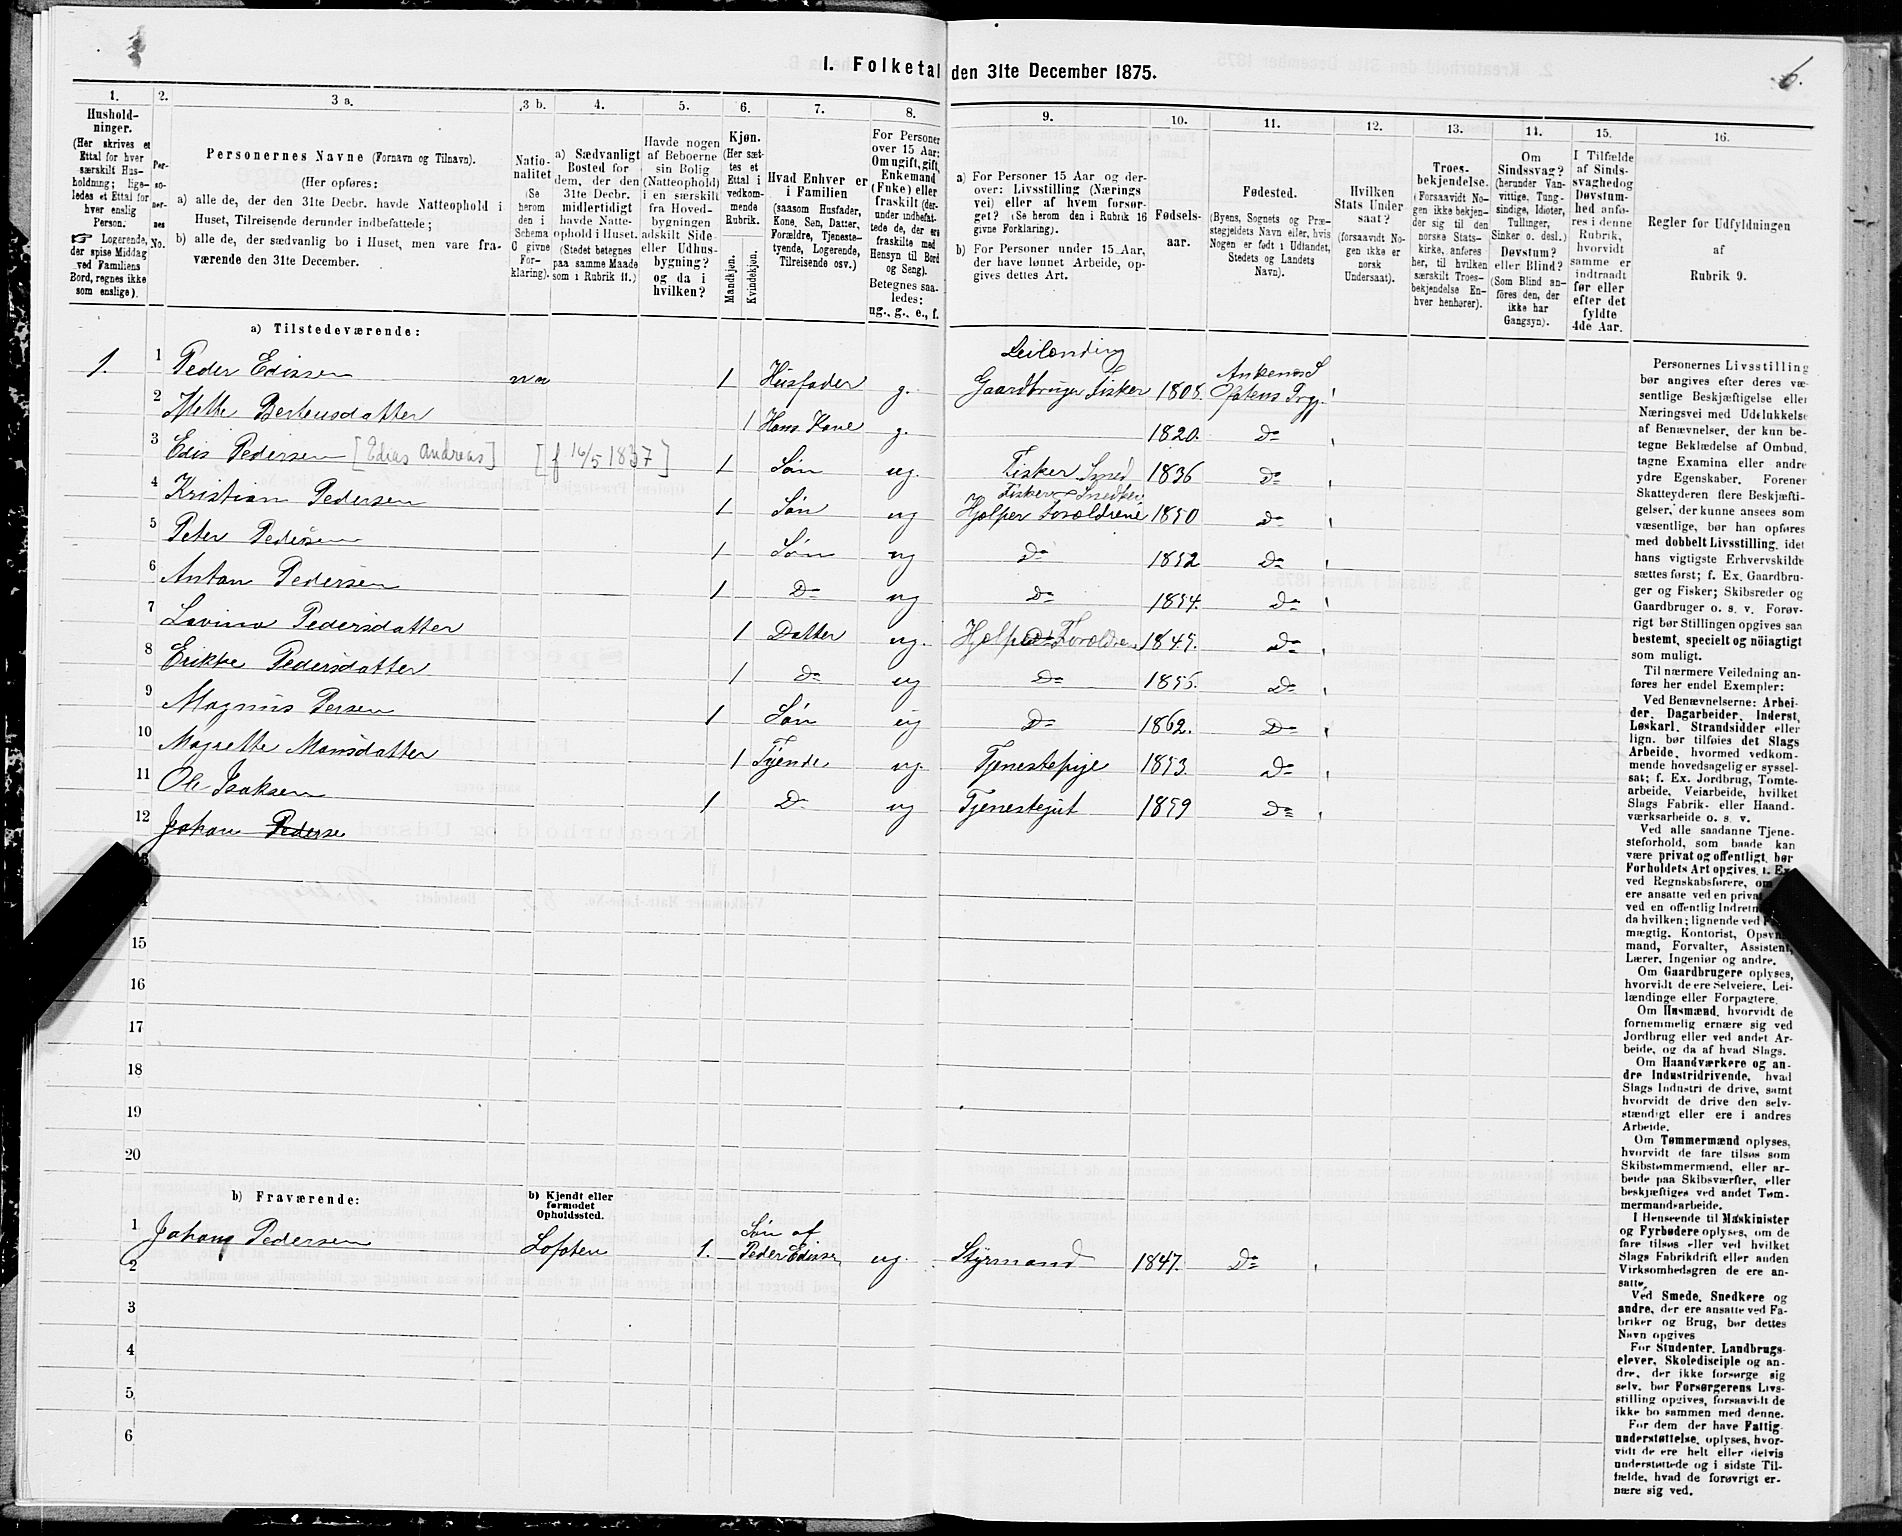 6.
1. Folketal den 31te December 1875.
1.
Hushold-
ninger.
(Her skrives et
Ettal for hver
særskilt Hus-
holdning; lige-
ledes et Ettal for
hver enslig
Person.
☞ Logerende,
der spise Middag
ved Familiens
Bord, regnes ikke
som enslige).
2.
Per-
so-
ner-
nes
No.
3 a.
Personernes Navne (Fornavn og Tilnavn).
(Her opføres:
a) alle de, der den 31te Decbr. havde Natteophold i
Huset, Tilreisende derunder indbefattede;
b) alle de, der sædvanlig bo i Huset, men vare fra-
værende den 31te December.
3 b.
Natio-
nalitet
(Se
herom
den i
Schema
C givne
For-
klaring).
4.
a) Sædvanligt
Bosted for
dem, der den
31te Decbr.
midlertidigt
havde Natte-
ophold i Huset.
(Stedet betegnes
paa samme Maade
som i Rubrik 11.)
5.
Havde nogen
af Beboerne
sin Bolig
(Natteophold)
i en særskilt
fra Hoved-
bygningen
adskilt Side-
eller Udhus-
bygning?
og da i
hvilken?
6.
Kjøn.
(Her sæt-
tes et
Ettal i
vedkom-
mende
Rubrik.
Mandkjøn.
Kvindekjøn.
7.
Hvad Enhver er
i Familien
(saasom Husfader,
Kone, Søn, Datter,
Forældre, Tjeneste-
tyende, Logerende,
Tilreisende osv.)
8.
For Personer
over 15 Aar:
Om ugift, gift,
Enkemand
(Enke) eller
fraskilt (der-
under indbefat-
tede de, der ere
fraskilte med
Hensyn til Bord
og Seng).
Betegnes saa-
ledes:
ug., g., e., f.
9.
a) For Personer 15 Aar og der-
over: Livsstilling (Nærings
vei) eller af hvem forsør-
get? (Se herom den i Rubrik 16
givne Forklaring).
b) For Personer under 15 Aar,
der have lønnet Arbeide, op-
gives dettes Art.
10.
Fødsels-
aar.
11.
Fødested.
(Byens, Sognets og Præ-
stegjeldets Navn eller, hvis
Nogen er født i Udlandet,
Stedets og Landets
Navn).
12.
Hvilken
Stats Under
saat?
(forsaavidt No-
gen ikke er
norsk
Undersaat).
13.
Troes-
bekjendelse.
(Forsaavidt No-
gen ikke bekjen-
der sig til den
norske Stats-
kirke, anføres
her, til hvilken
særskilt Troes-
bekjendelse En-
hver henhører).
14.
Om
Sindssvag?
(herunder Van-
vittige, Tung-
sindige, Idioter,
Tullinger,
Sinker o. desl.)
Døvstum?
eller Blind?
(Som Blind an-
føres den, der
ikke har
Gangsyn).
15.
I Tilfælde
af Sinds-
svaghedog
Døvstum-
hed anfø-
res i denne
Rubrik,
hvorvidt
samme er
indtraadt
før eller
efter det
fyldte
4de Aar.
16.
Regler for Udfyldningen
af
Rubrik 9.
a) Tilstedeværende:
1. 1 Peder Edissen nn 1 Husfader g. Leilænding Gaardbruger Fisker 1808. Ankenæs Ofotens Prgj.
2 Mette Berteusdatter 1 Hans Kone g. 1820. Do
3 Edis Pedersen [Edias Andreas] [f 16/5 1837] 1 Søn ug. Fisker Smed 1836 Do
4 Kristian Pedersen 1 Søn ug Fisker Snedker Hjelper Forældrene 1850 Do
5 Peter Pedersen 1 Søn ug Do 1852 Do
6 Anton Pedersen 1 Do ug Do 1854. Do
7 Lovina Pedersdatter 1 Datter ug. Hjelper Forældrene 1845. Do
8 Erikke Pedersdatter 1 Do ug Do 1855. Do
9 Magnus Persen 1 Søn ug Do 1862. Do
10 Magrette Monsdatter 1 Tyende ug Tjenestepige 1853 Do
11 Ole Isaksen 1 Do ug Tjenestegut 1859 Do
12 Johan Pederse
13
14
15
16
17
18
19
20
b) Fraværende:
b) Kjendt eller
formodet
Opholdssted.
1 Johan Pedersen Lofoten 1. Søn af Peder Edissen ug. Styrmand 1847. Do
2
3
4
5
6
Personernes Livsstilling
bør angives efter deres væ-
sentlige Beskjæftigelse eller
Næringsvei med Udelukkelse
af Benævnelser, der kun be-
tegne Beklædelse af Ombud,
tagne Examina eller andre
ydre Egenskaber. Forener
Skatteyderen flere Beskjæfti-
gelser, der kunne ansees som
væsentlige, bør han opføres
med dobbelt Livsstilling, idet
hans vigtigste Erhvervskilde
sættes først; f. Ex. Gaardbru-
ger og Fisker; Skibsreder og
Gaardbruger o. s. v. Forøv-
rigt bør Stillingen opgives saa
bestemt, specielt og nöiagtigt
som muligt.
Til nærmere Veiledning an-
føres her endel Exempler:
Ved Benævnelserne: Arbei-
der, Dagarbeider, Inderst,
Løskarl, Strandsidder eller
lign. bør tilføies det Slags
Arbeide, hvormed vedkom-
mende hovedsagelig er syssel-
sat; f. Ex. Jordbrug, Tomte-
arbeide, Veiarbeide, hvilket
Slags Fabrik- eller Haand-
værksarbeide o. s. v.
Ved alle saadanne Tjene-
steforhold, som baade kan
være privat og offentligt, bør
Forholdets Art opgives, f. Ex.
ved Regnskabsførere, om
ere ansatte ved en privat
ved en offentlig Indretn
da hvilken; lignende ved
mægtig, Kontorist, Opsyns-
mand, Forvalter, Assistent,
Lærer, Ingeniør og andre.
Om Gaardbrugere oplyses,
hvorvidt de ere Selveiere, Lei-
lændinge eller Forpagtere.
Om Husmænd, hvorvidt de
fornemmelig ernære sig ved
Jordbrug eller ved andet Ar-
beide, og da af hvad Slags.
Om Haandværkere og an-
dre Industridrivende, hvad
Slags Industri de drive, samt
hvorvidt de drive den selv-
stændigt eller ere i andres
Arbeide.
Om Tømmermænd oplyses,
hvorvidt de fare tilsøs som
Skibstømmermænd, eller ar-
beide paa Skibsværfter, eller
beskjæftiges ved andet Tøm-
mermandsarbeide.
I Henseende til Maskinister
og Fyrbødere oplyses, om de
fare tilsøs eller ved hvilket
Slags Fabrikdrift eller anden
Virksomhedsgren de ere an-
satte.
Ved Smede, Snedkere og
andre, der ere ansatte ved Fa-
briker og Brug, bør dettes
Navn opgives
For Studenter, Landbrugs-
elever, Skoledisciple og an-
dre, der ikke forsørge sig
selv, bør Forsørgerens Livs-
stilling opgives, forsaavidt de
ikke bo sammen med denne.
For dem der have Fattig-
understøttelse, oplyses, hvor-
vidt de ere helt eller delvis
understøttede og i sidste Til-
fælde, hvad de forøvrigt er-
nære sig ved.